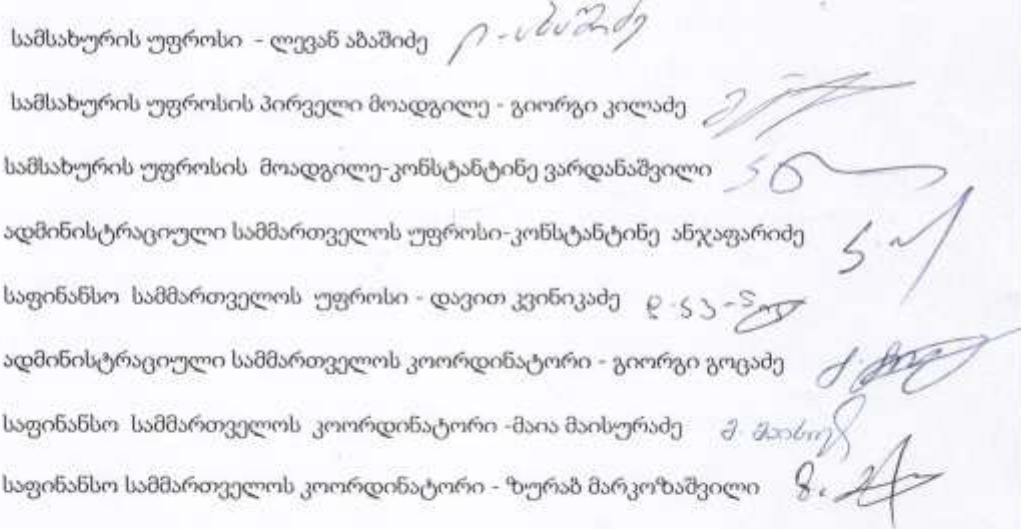 სამსახურის უფროსი - ლევან აბაშიძე
სამსახურის უფროსის პირველი მოადგილე - გიორგი კილაძე
სამსახურის უფროსის მოადგილე-კონსტანტინე ვარდანაშვილი
ადმინისტრაციული სამმართველოს უფროსი-კონსტანტინე ანჯაფარიძე
საფინანსო სამმართველოს უფროსი - დავით კვინიკაძე
ადმინისტრაციული სამმართველოს კოორდინატორი - გიორგი გოცაძე
საფინანსო სამმართველოს კოორდინატორი -მაია მაისურაძე
საფინანსო სამმართველოს კოორდინატორი - ზურაბ მარკოზაშვილი